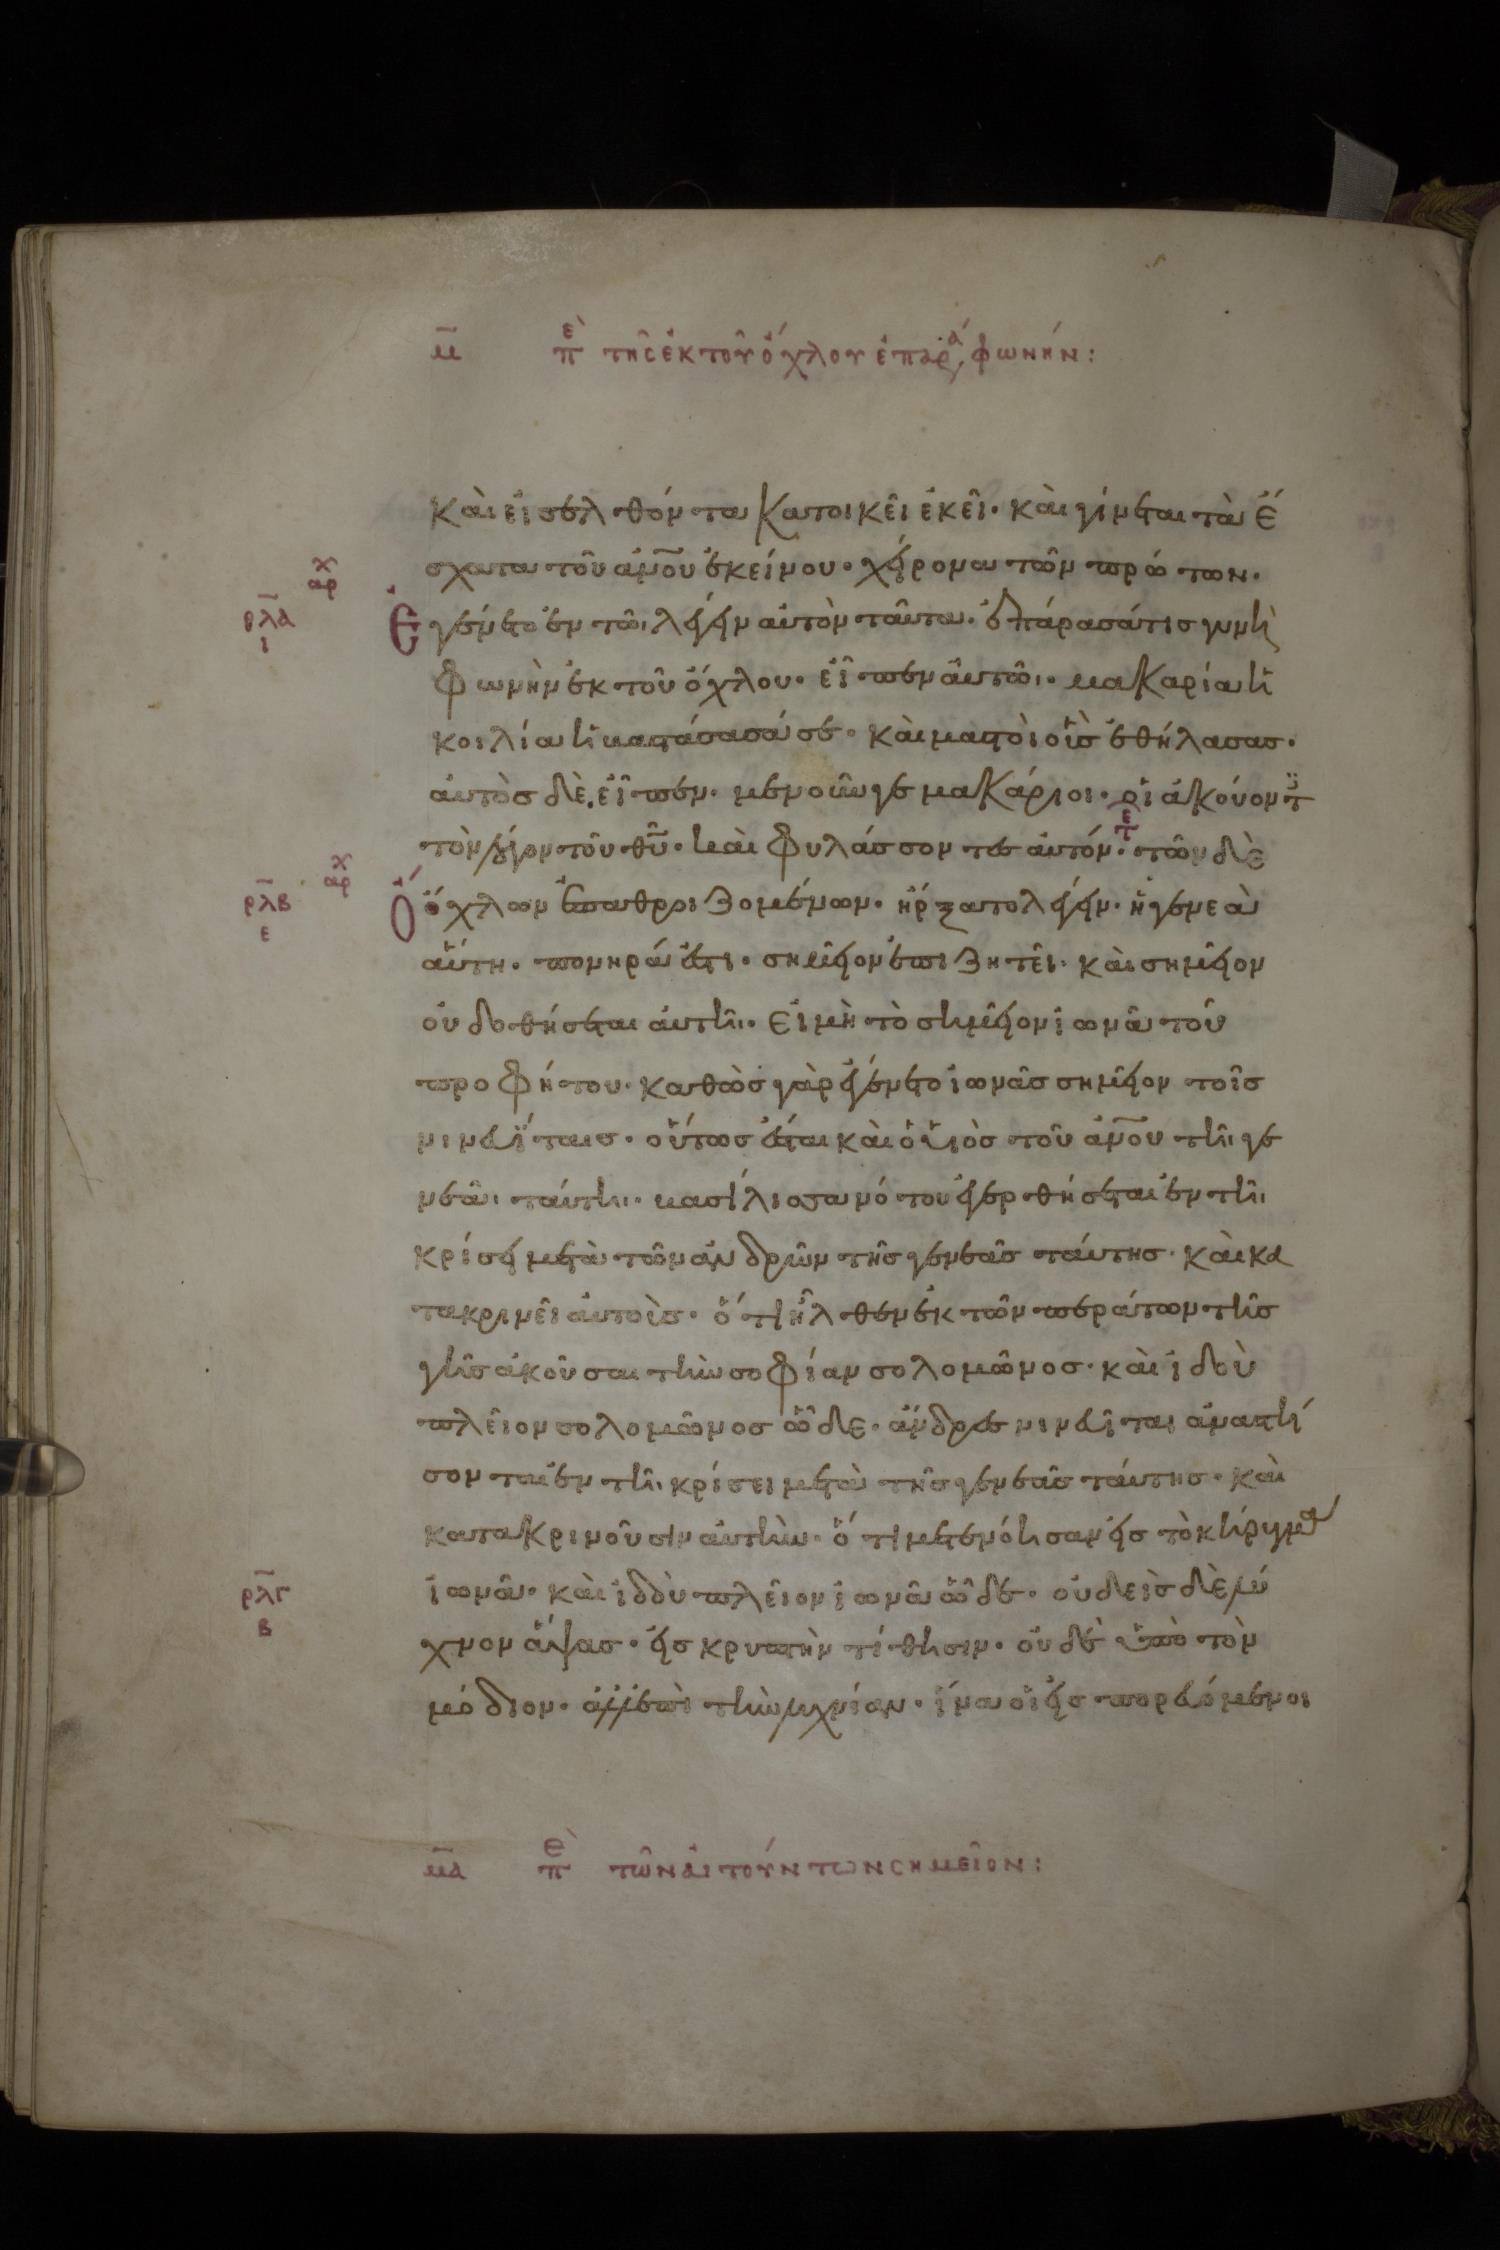 μ̄ πὲ τῆς ἐκ τοῦ ὄχλου ἐπαρά φωνήν:
καὶ εἰσελθόντα κατοικεῖ ἐκεῖ· καὶ γίνεται τὰ ἔ
σχατα τοῦ ἀν̅ου ἐκείνου· χείρονα τῶν πρώτων·
χ
αρ
ρλ̅α
ι
Ἐγένετο ἐν τῶι λέγειν αὐτὸν ταῦτα· ἐπάρασά τις γυνὴ
φωνὴν ἐκ τοῦ ὄχλου· εἶπεν αὐτῶι· μακαρία ἡ
κοιλία ἡ βαστάσασά σε· καὶ μαστοὶ οἷς ἐθήλασας·
αὐτὸς δὲ εἶπεν· μενοῦνγε μακάριοι· οἱ ἀκούοντ
τὸν λόγον τοῦ θ̅υ· καὶ φυλάσσοντες αὐτόν· τε τῶν δὲ
χ
αρ
ρλ̅β
ε
Ὁ ὄχλων ἐπαθροιζομένων· ἤρξατο λέγειν· ἡ γενεὰ
αὕτη· πονηρά ἐστι· σημεῖον ἐπιζητεῖ· καὶ σημεῖον
οὐ δοθήσεται αὐτῆι· εἰ μὴ τὸ σημεῖον ἰωνᾶ τοῦ
προφήτου· καθὼς γὰρ ἐγένετο ἰωνᾶς σημεῖον τοῖς
νινευΐταις· οὕτως ἔσται καὶ ὁ υἱὸς τοῦ ἀν̅ου τῆι γε
νεᾶι ταύτηι· βασίλισσα νότου ἐγερθήσεται ἐν τῆι
κρίσει μετὰ τῶν ἀνδρῶν τῆς γενεᾶς ταύτης· καὶ κα
τακρινεῖ αὐτοὺς· ὅτι ἦλθεν ἐκ τῶν περάτων τῆς
γῆς ἀκοῦσαι τὴν σοφίαν σολομῶνος· καὶ ἰδοὺ
πλεῖον σολομῶνος ὧδε· ἄνδρες νινευῖται ἀναστή
σονται ἐν τῆι κρίσει μετὰ τῆς γενεᾶς ταύτης· καὶ
κατακρινοῦσιν αὐτὴν· ὅτι μετενόησαν εἰς τὸ κήρυγμα
ρλ̅γ
β
ἰωνᾶ· καὶ ἰδοὺ πλεῖον ἰωνᾶ ὧδε· οὐδεὶς δὲ λύ
χνον ἅψας· εἰς κρυπτὴν τίθησιν· οὐδὲ ὑπὸ τὸν
μόδιον· ἀλλ' ἐπὶ τὴν λυχνίαν· ἵνα οἱ εἰσπορευόμενοι
μ̅α πὲ τῶν αἰτούντων σημεῖον: